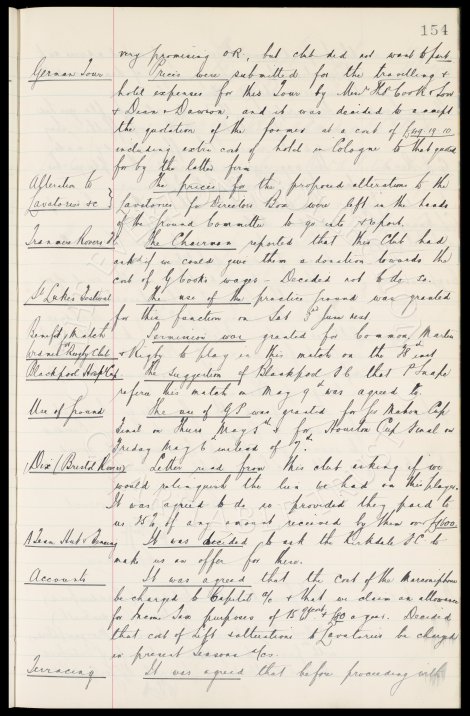 154
very promising OR, but club did not want to part
German Tour Prices were submitted for the travelling &
hotel expenses for this Tour by Messrs Thos Cook & Son
& Dean & Dawson, and it was decided to accept
the quotation of the former at a cost of
including extra cost of hotel in Cologne to that quoted
for by the latter firm
Alteration to The prices for the proposed alterations to the
Lavatories &c Lavatories for Directors Box were left in the hands
of the Ground Committee to go into & report.
Tranmere Rovers FC The Chairman reported that this Club had
asked if we could give them a donation towards the
cost of G Cooks wages – Decided not to do so.
St Lukes Festival The use of the practice ground was granted
for this function on Sat 3rd June next
Benefit Match Permission was granted for Common, Martin
v Rugby Club & Rigby to play in this match on the 28th inst
Blackpool Hosp Cup The suggestion of Blackpool FC that P Snape
referee this match on May 9th was agreed to.
Use of Ground The use of GP was granted for Geo Mahon Cup
Final on Thurs May 5th & for Houston Cup Final on
Friday May 6th instead of 7th.
(Dix) (Bristol Rovers) Letter read from this club asking if we
would relinquish the lien we had on this player.
It was agreed to do so provided they paid to
us 75% of any amount received by them over £1000.
A Team Hut & Fencing It was decided to ask the Kirkdale FC to
make us an offer for these.
Accounts It was agreed that the cost of the
be charged to Capital a/c & that we claim an allowance
for Income Tax purposes of & £60 a year. Decided
that cost of Lift & alterations to Lavatories be charged
in present Seasons a/cs.
Terracing It was agreed that before proceeding with